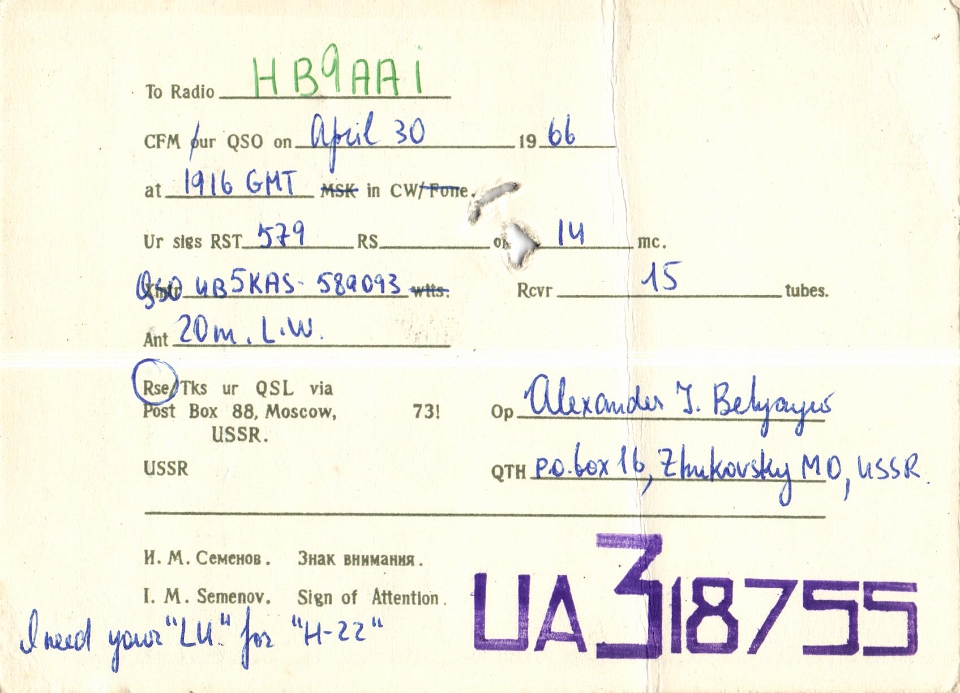 To Radio HB9AAi
CFM our QSO on April 30 1966
at 1916 GMT MSK in CW/Fone.
Ur sigs RST 579 RS on 14 mc.
QSO UB5KAS- 589093 wtts. Rcvr 15 tubes.
Ant 20m. L.W.
Rse/Tks ur QSL via
Post Box 88, Moscow, 73! Op Alexander J. Belyayev
USSR.
USSR QTH p.o.box 16, Zhukovsky MO, USSR.
И. М. Семенов. Знак внимания.
I. M. Semenov. Sign of Attention.
I need your "LU" for "H-22"
UA318755